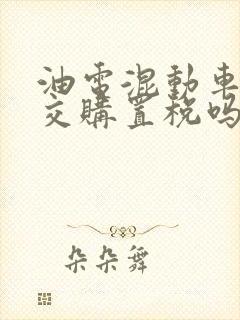 油電混動車
交購置稅嗎
朵朵舞